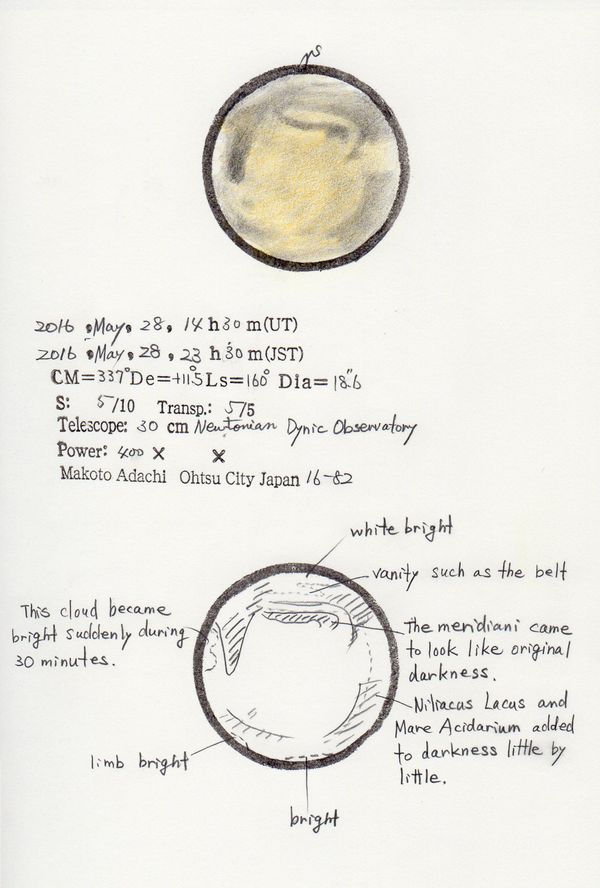 PS
2016, May, 28, 14 h 30 m (UT)
2016, May, 28, 23 h 30 m (JST)
CM=337° De=+11.5 Ls=160° Dia=18.6"
S: 5/10 Transp.: 5/5
Telescope: 30 cm Newtonian Dynic Observatory
Power: 400 × ×
Makoto Adachi Ohtsu City Japan 16-82
white bright
vanity such as the belt
This cloud became
bright suddenly during
30 minutes.
The meridiani came
to look like original
darkness.
Niliacus Lacus and
Mare Acidarium added
to darkness little by
little.
limb bright
bright